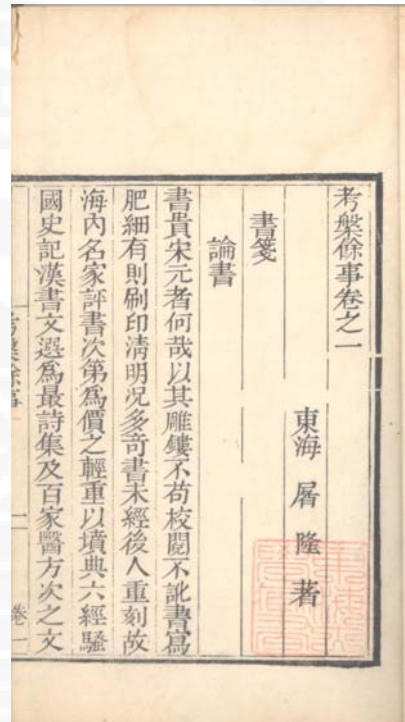 考槃餘事卷之一
東海 屠隆 著
書箋
論書
書貴宋元者何哉以其雕鏤不苟校閱不訛書寫
肥細有則刷印清明况多奇書未經後人重刻故
海內名家評書次第為價之輕重以墳典六經騷
國史記漢書文選為最詩集及百家醫方次之文
考槃餘事
一
卷一